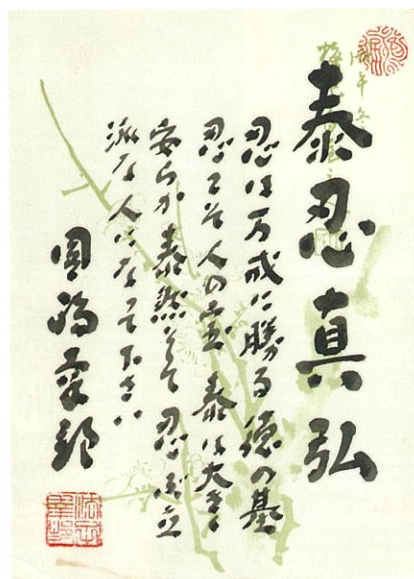 泰忍真弘
忍は万戒に勝る徳の基
忍こそ人の宝 泰は大きく
安らか 泰然として 忍ぶ立
派な人になって下さい